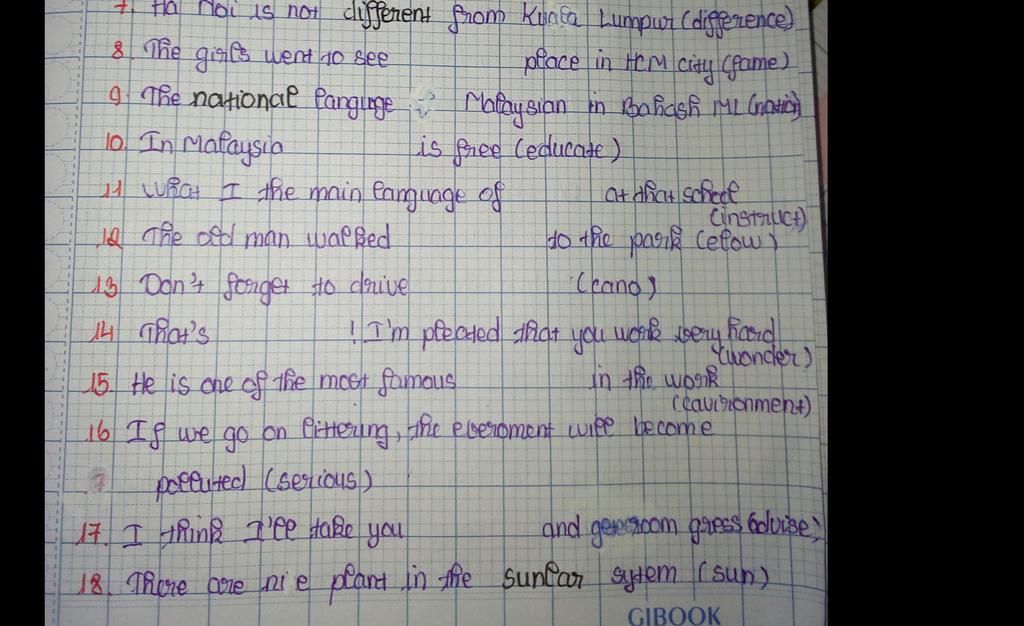 7. Ha Noi is not different from Kuala Lumpur (difference)
8. The girls went to see place in HCM city (fame)
9. The national languge Malaysian in Bahash ML (nation)
10. In Malaysia is free (educate)
11 What I the main language of at that school
(instruct)
12 The old man walked to the park (elow)
13 Don't forget to drive (cano)
14 That's ! I'm pleated that you work very hard
(wonder)
15. He is one of the most famous in the work
(cavironment)
16 If we go on littering, the everoment will become
polluted (serious)
17. I think I'll take you and grass (advise)
18. There are nie plant in the sunlar sytem (sun)
GIBOOK